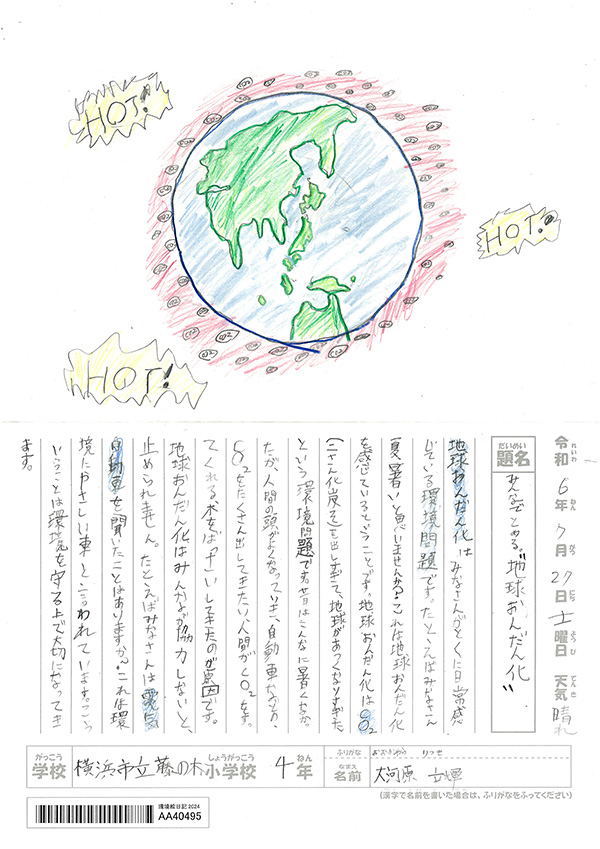 HOT!
HOT!
HOT!
CO2
令和6年7月27日土曜日 天気 晴れ
れいわ ねん がつ にち どようび てんき
だいめい
題名
みんなでとめる。"地球おんだん化"
地球おんだん化はみなさんがとくに日常感
じている環境問題です。たといえばみなさん
夏暑いと思いませんか?これは地球おんだん化
を感じているということです。地球おんだん化はCO2
(二さん化炭そ)を出しすぎて、地球があつくなりすぎた
という環境問題です。昔はこんなに暑くなか
たが、人間の頭がよくなっていき、自動車などが、
CO2をたくさん出してきたい、人間がCO2をす
てくれる木をばっさいしてきたのが原因です。
地球おんだん化はみんなが協力しないと、
止められません。たとえばみなさんは電気
自動車を聞いたことはありますか?これは環
境にやさしい車と言われています。こう
いうことは環境を守る上で大切になってき
ます。
がっこう
学校
横浜市立藤の木小学校
しょうがっこう
4年
ねん
ふりがな
なまえ
名前
大河原
(漢字で名前を書いた場合は、ふりがなをふってください)
環境絵日記2024
AA40495